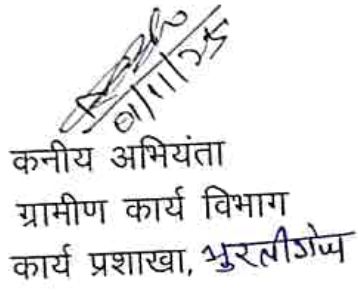 01/11/25
कनीय अभियंता
ग्रामीण कार्य विभाग
कार्य प्रशाखा, मुरलीगंज